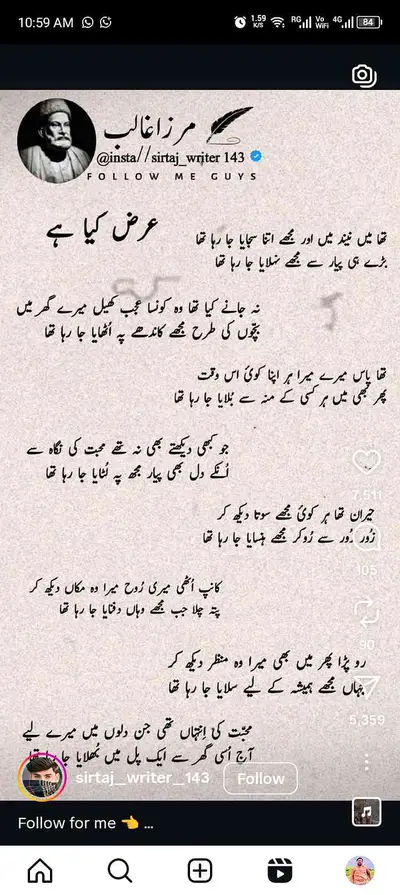 10:59 AM
1.59 K/S
RG
Vo WiFi
4G
84
مرزا غالب
@insta//sirtaj_writer 143
FOLLOW ME GUYS
عرض کیا ہے
تھا میں نیند میں اور مجھے اتنا سجایا جا رہا تھا
بڑے ہی پیار سے مجھے نہلایا جا رہا تھا
نہ جانے کیا تھا وہ کونسا عجب کھیل میرے گھر میں
بچّوں کی طرح مجھے کاندھے پہ اُٹھایا جا رہا تھا
تھا پاس میرے میرا ہر اپنا کوئ اس وقت
پھر بھی میں ہر کسی کے منہ سے بُلایا جا رہا تھا
جو کبھی دیکھتے بھی نہ تھے محبت کی نگاہ سے
اُنکے دل بھی پیار مجھ پہ لُٹایا جا رہا تھا
حیران تھا ہر کوئ مجھے سوتا دیکھ کر
زُور زُور سے رُوکر مجھے ہنسایا جا رہا تھا
کانپ اُٹھی میری رُوح میرا وہ مکاں دیکھ کر
پتہ چلا جب مجھے وہاں دفنایا جا رہا تھا
رو پڑا پھر میں بھی میرا وہ منظر دیکھ کر
جہاں مجھے ہمیشہ کے لیے سلایا جا رہا تھا
محبّت کی اِنتہاں تھی جن دلوں میں میرے لیے
آج اُسی گھر سے ایک پل میں بُھلایا جا رہا تھا
105
90
5,359
sirtaj_writer_143
Follow
Follow for me 👈 ...